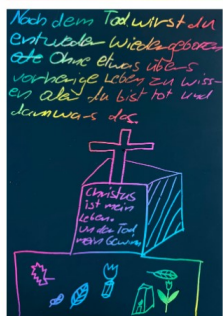 Nach dem Tod wirst du
entweder wiedergeboren
Ohne etwas übers
vorherige Leben zu wiss-
en aber du bist tot und
dann was das.
Christus
ist mein
Leben.
und der Tod
mein Gewinn